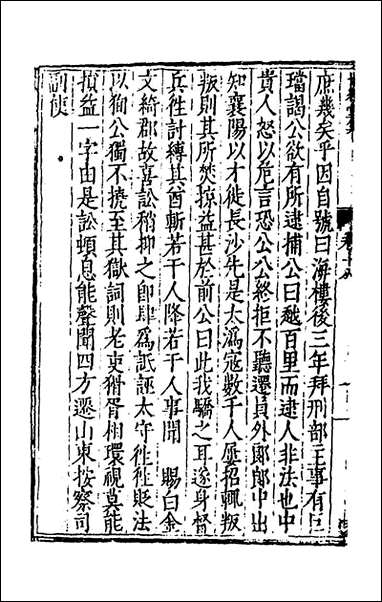 庶幾矣乎因自號曰海樓後三年拜刑部主事有巨
璫謁公欲有所逮捕公曰越百里而逮人非法也中
貴人怒以危言恐公公終拒不聽遷員外郎郎中出
知襄陽以才徙長沙先是大溈寇數千人屢招輒叛
叛則其所焚掠益甚於前公曰此我驕之耳遂身督
兵往討縛其酋斬若干人降若干人事聞　賜白金
文綺郡故喜訟稍抑之卽肆爲詆誣太守往往貶法
以狥公獨不撓至其獄詞則老吏猾胥相環視莫能
損益一字由是訟頓息能聲聞四方遷山東按察司
副使